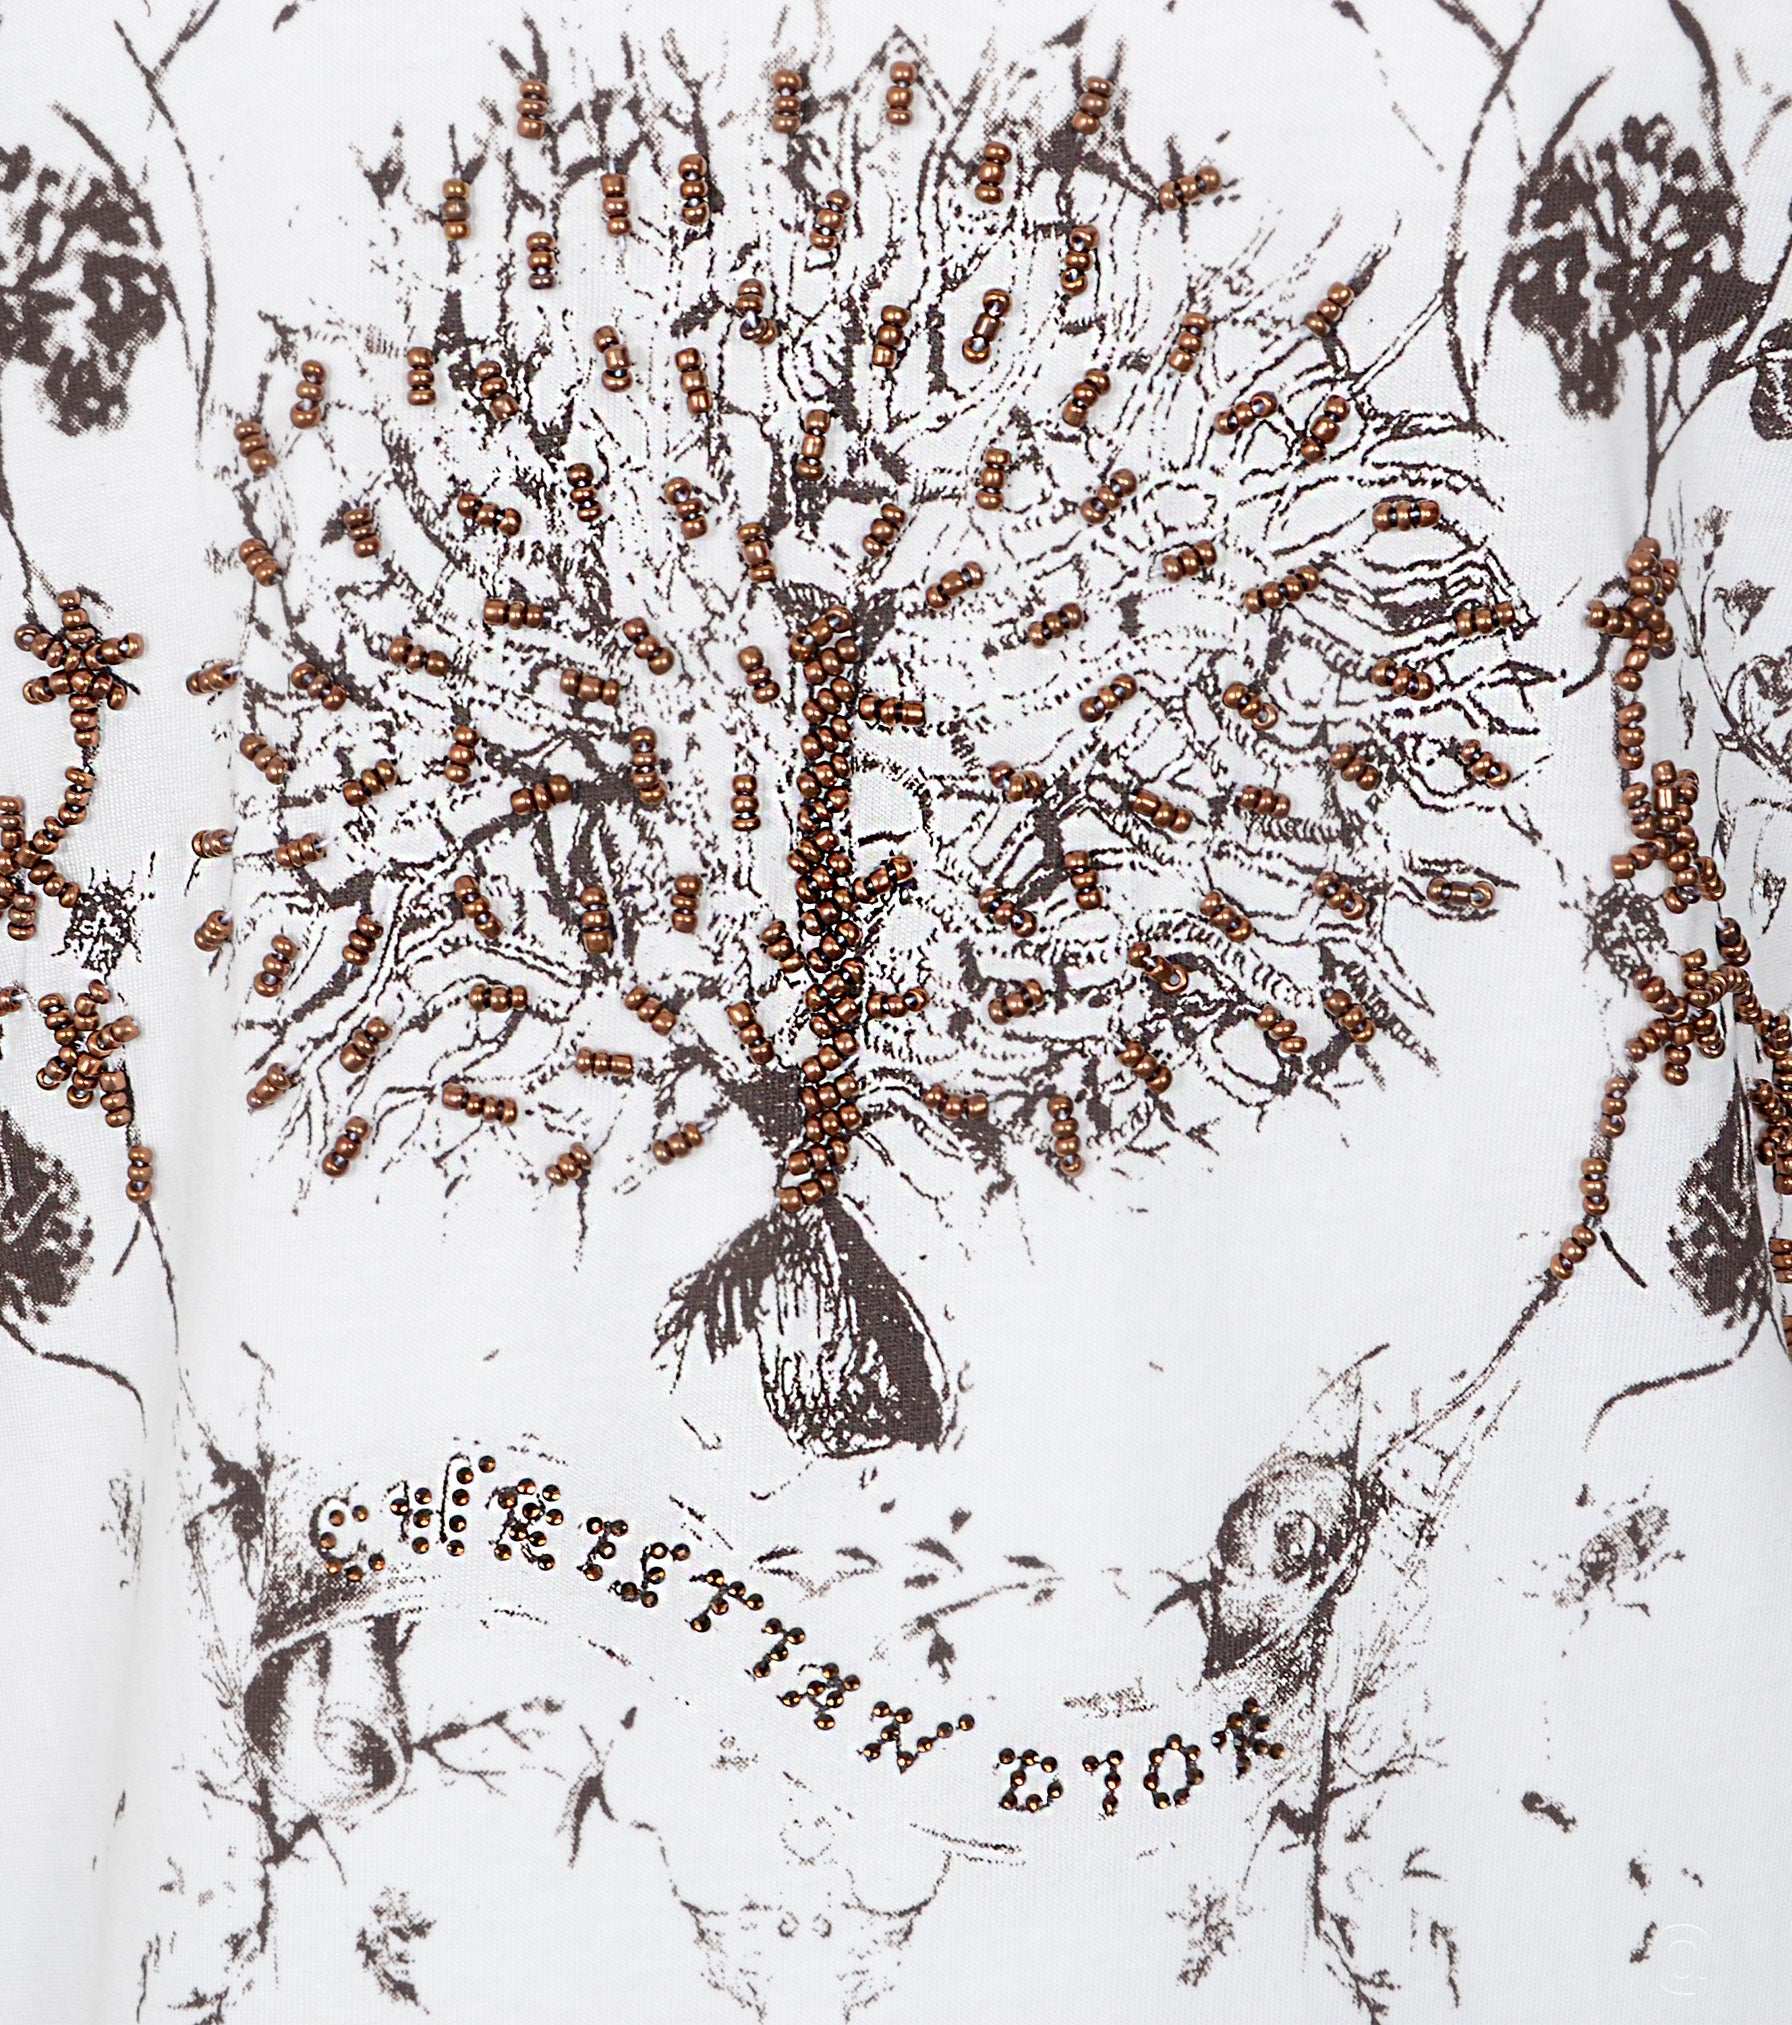 CHRISTIAN DIOR